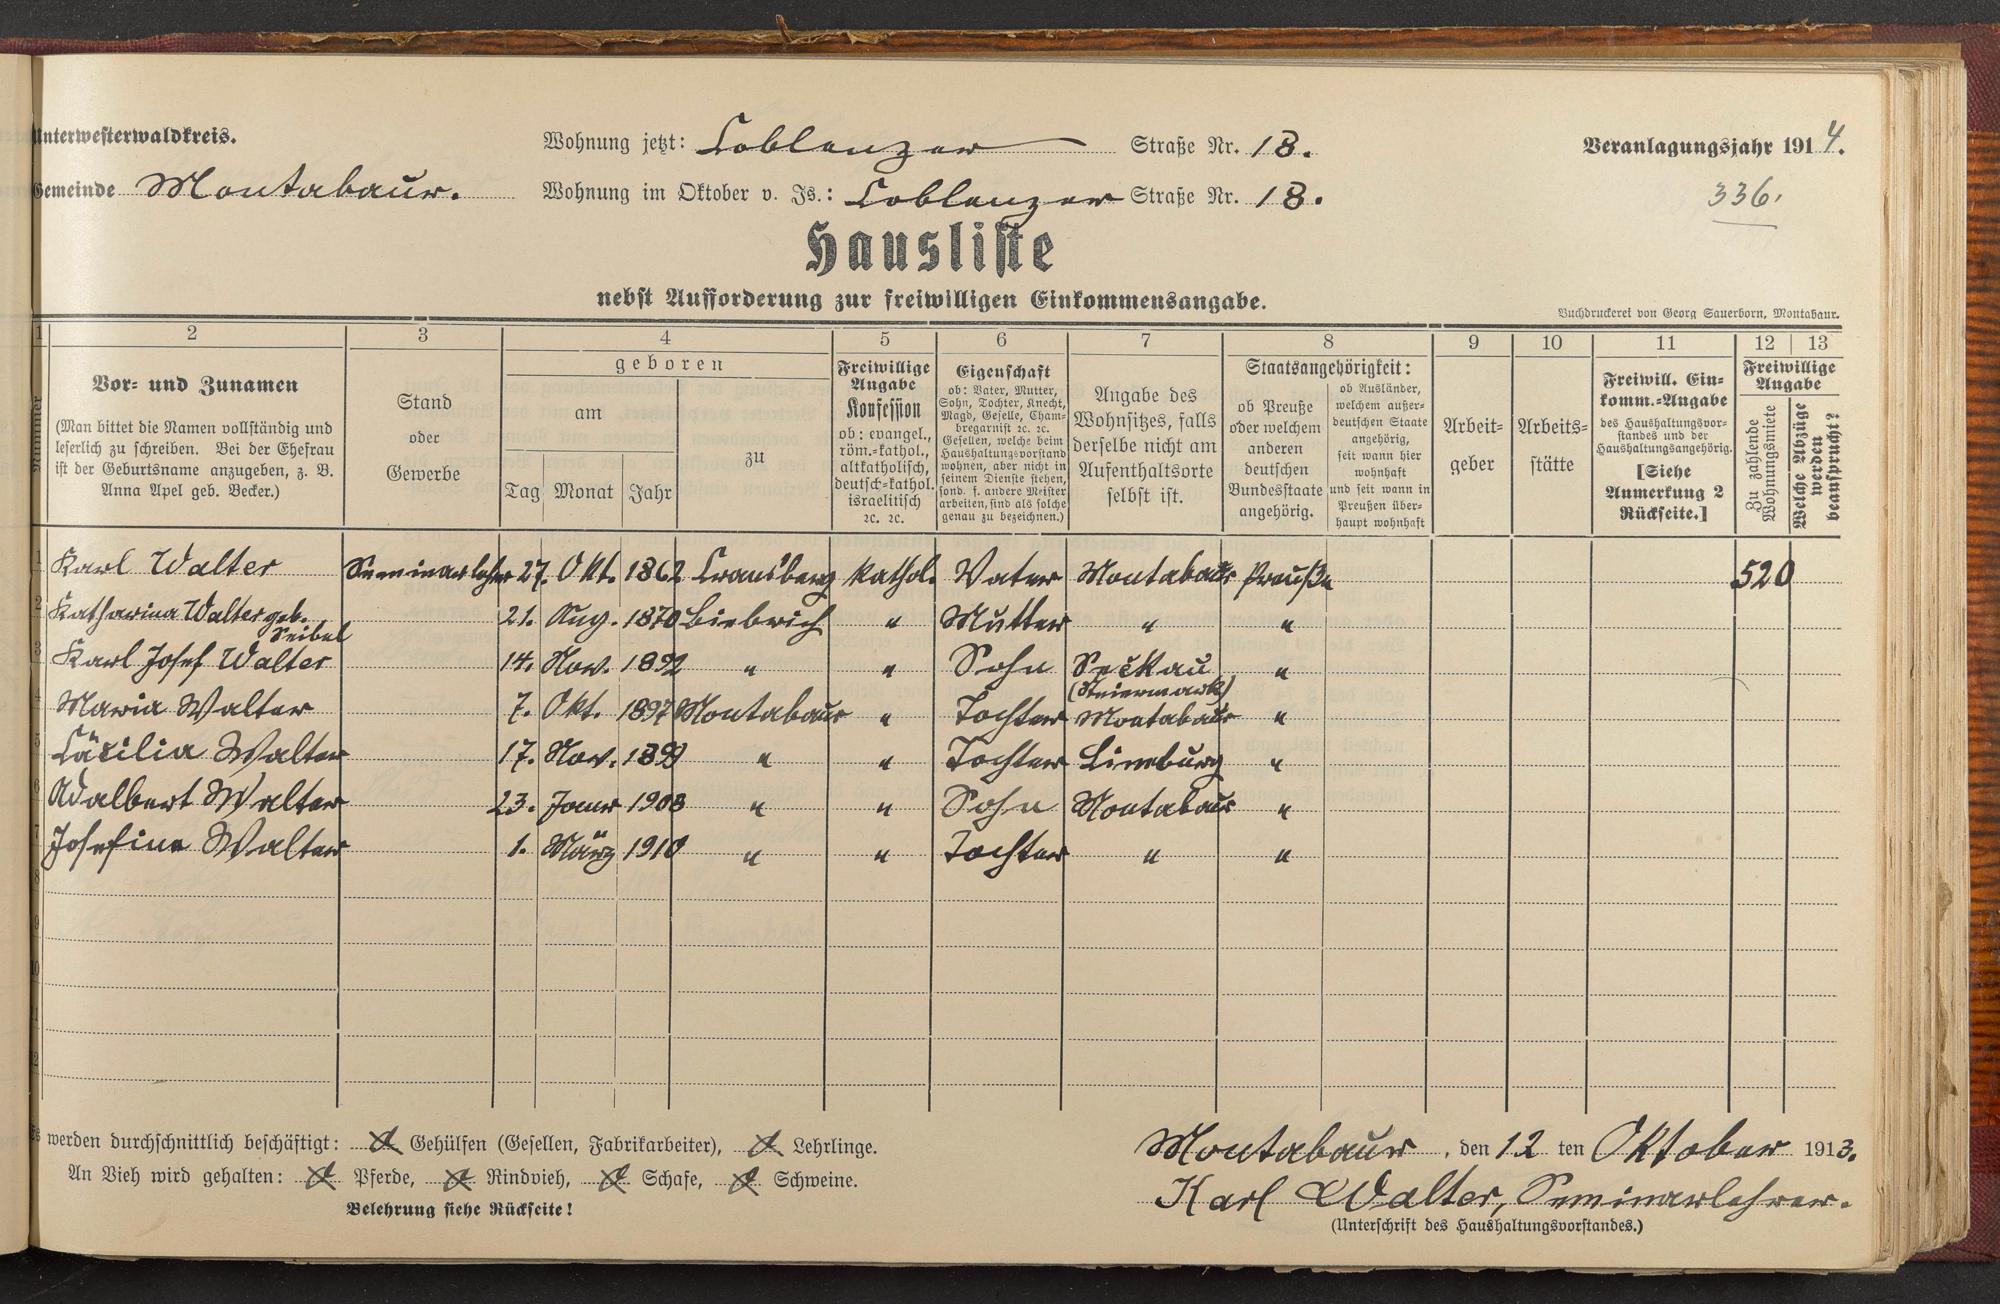 Unterwesterwaldkreis.
Gemeinde Montabaur.
Wohnung jetzt: Coblenzer Straße Nr. 18.
Wohnung im Oktober v. Js.: Coblenzer Straße Nr. 18.
Veranlagungsjahr 1914.
336.
Hausliste
nebst Aufforderung zur freiwilligen Einkommensangabe.
Buchdruckerei von Georg Sauerborn, Montabaur.
1 2 3 4 5 6 7 8 9 10 11 12 13
Nummer
Vor- und Zunamen
(Man bittet die Namen vollständig und
leserlich zu schreiben. Bei der Ehefrau
ist der Geburtsname anzugeben, z. B.
Anna Apel geb. Becker.)
Stand
oder
Gewerbe
geboren
am
Tag Monat Jahr
zu
Freiwillige
Angabe
Konfession
ob: evangel.,
röm.-kathol.,
altkatholisch,
deutsch-kathol.
israelitisch
ꝛc. ꝛc.
Eigenschaft
ob: Vater, Mutter,
Sohn, Tochter, Knecht,
Magd, Geselle, Cham-
bregarnist ꝛc. ꝛc.
Gesellen, welche beim
Haushaltungsvorstand
wohnen, aber nicht in
seinem Dienste stehen,
sond. f. andere Meister
arbeiten, sind als solche
genau zu bezeichnen.)
Angabe des
Wohnsitzes, falls
derselbe nicht am
Aufenthaltsorte
selbst ist.
Staatsangehörigkeit:
ob Preuße
oder welchem
anderen
deutschen
Bundesstaate
angehörig.
ob Ausländer,
welchem außer-
deutschen Staate
angehörig,
seit wann hier
wohnhaft
und seit wann in
Preußen über-
haupt wohnhaft
Arbeit-
geber
Arbeits-
stätte
Freiwill. Ein-
komm.-Angabe
des Haushaltungsvor-
standes und der
Haushaltungsangehörig.
[Siehe
Anmerkung 2
Rückseite.]
Freiwillige
Angabe
Zu zahlende
Wohnungsmiete
Welche Abzüge
werden
beansprucht?
1 Karl Walter Seminarlehrer 27. Okt. 1862 Cransberg kathol. Vater Montabaur Preuße 520
2 Katharina Walter geb. Seibel 21. Aug. 1870 Biebrich " Mutter " "
3 Karl Josef Walter 14. Nov. 1892 " " Sohn Seckau (Steiermark) "
4 Maria Walter 7. Okt. 1897 Montabaur " Tochter Montabaur "
5 Cäcilia Walter 17. Nov. 1899 " " Tochter Limburg "
6 Adalbert Walter 23. Janr 1908 " " Sohn Montabaur "
7 Josefine Walter 1. März 1910 " " Tochter " "
8
9
10
11
12
Es werden durchschnittlich beschäftigt: Gehülfen (Gesellen, Fabrikarbeiter), Lehrlinge.
An Vieh wird gehalten: Pferde, Rindvieh, Schafe, Schweine.
Belehrung siehe Rückseite!
Montabaur, den 12 ten Oktober 1913.
Karl Walter, Seminarlehrer.
(Unterschrift des Haushaltungsvorstandes.)